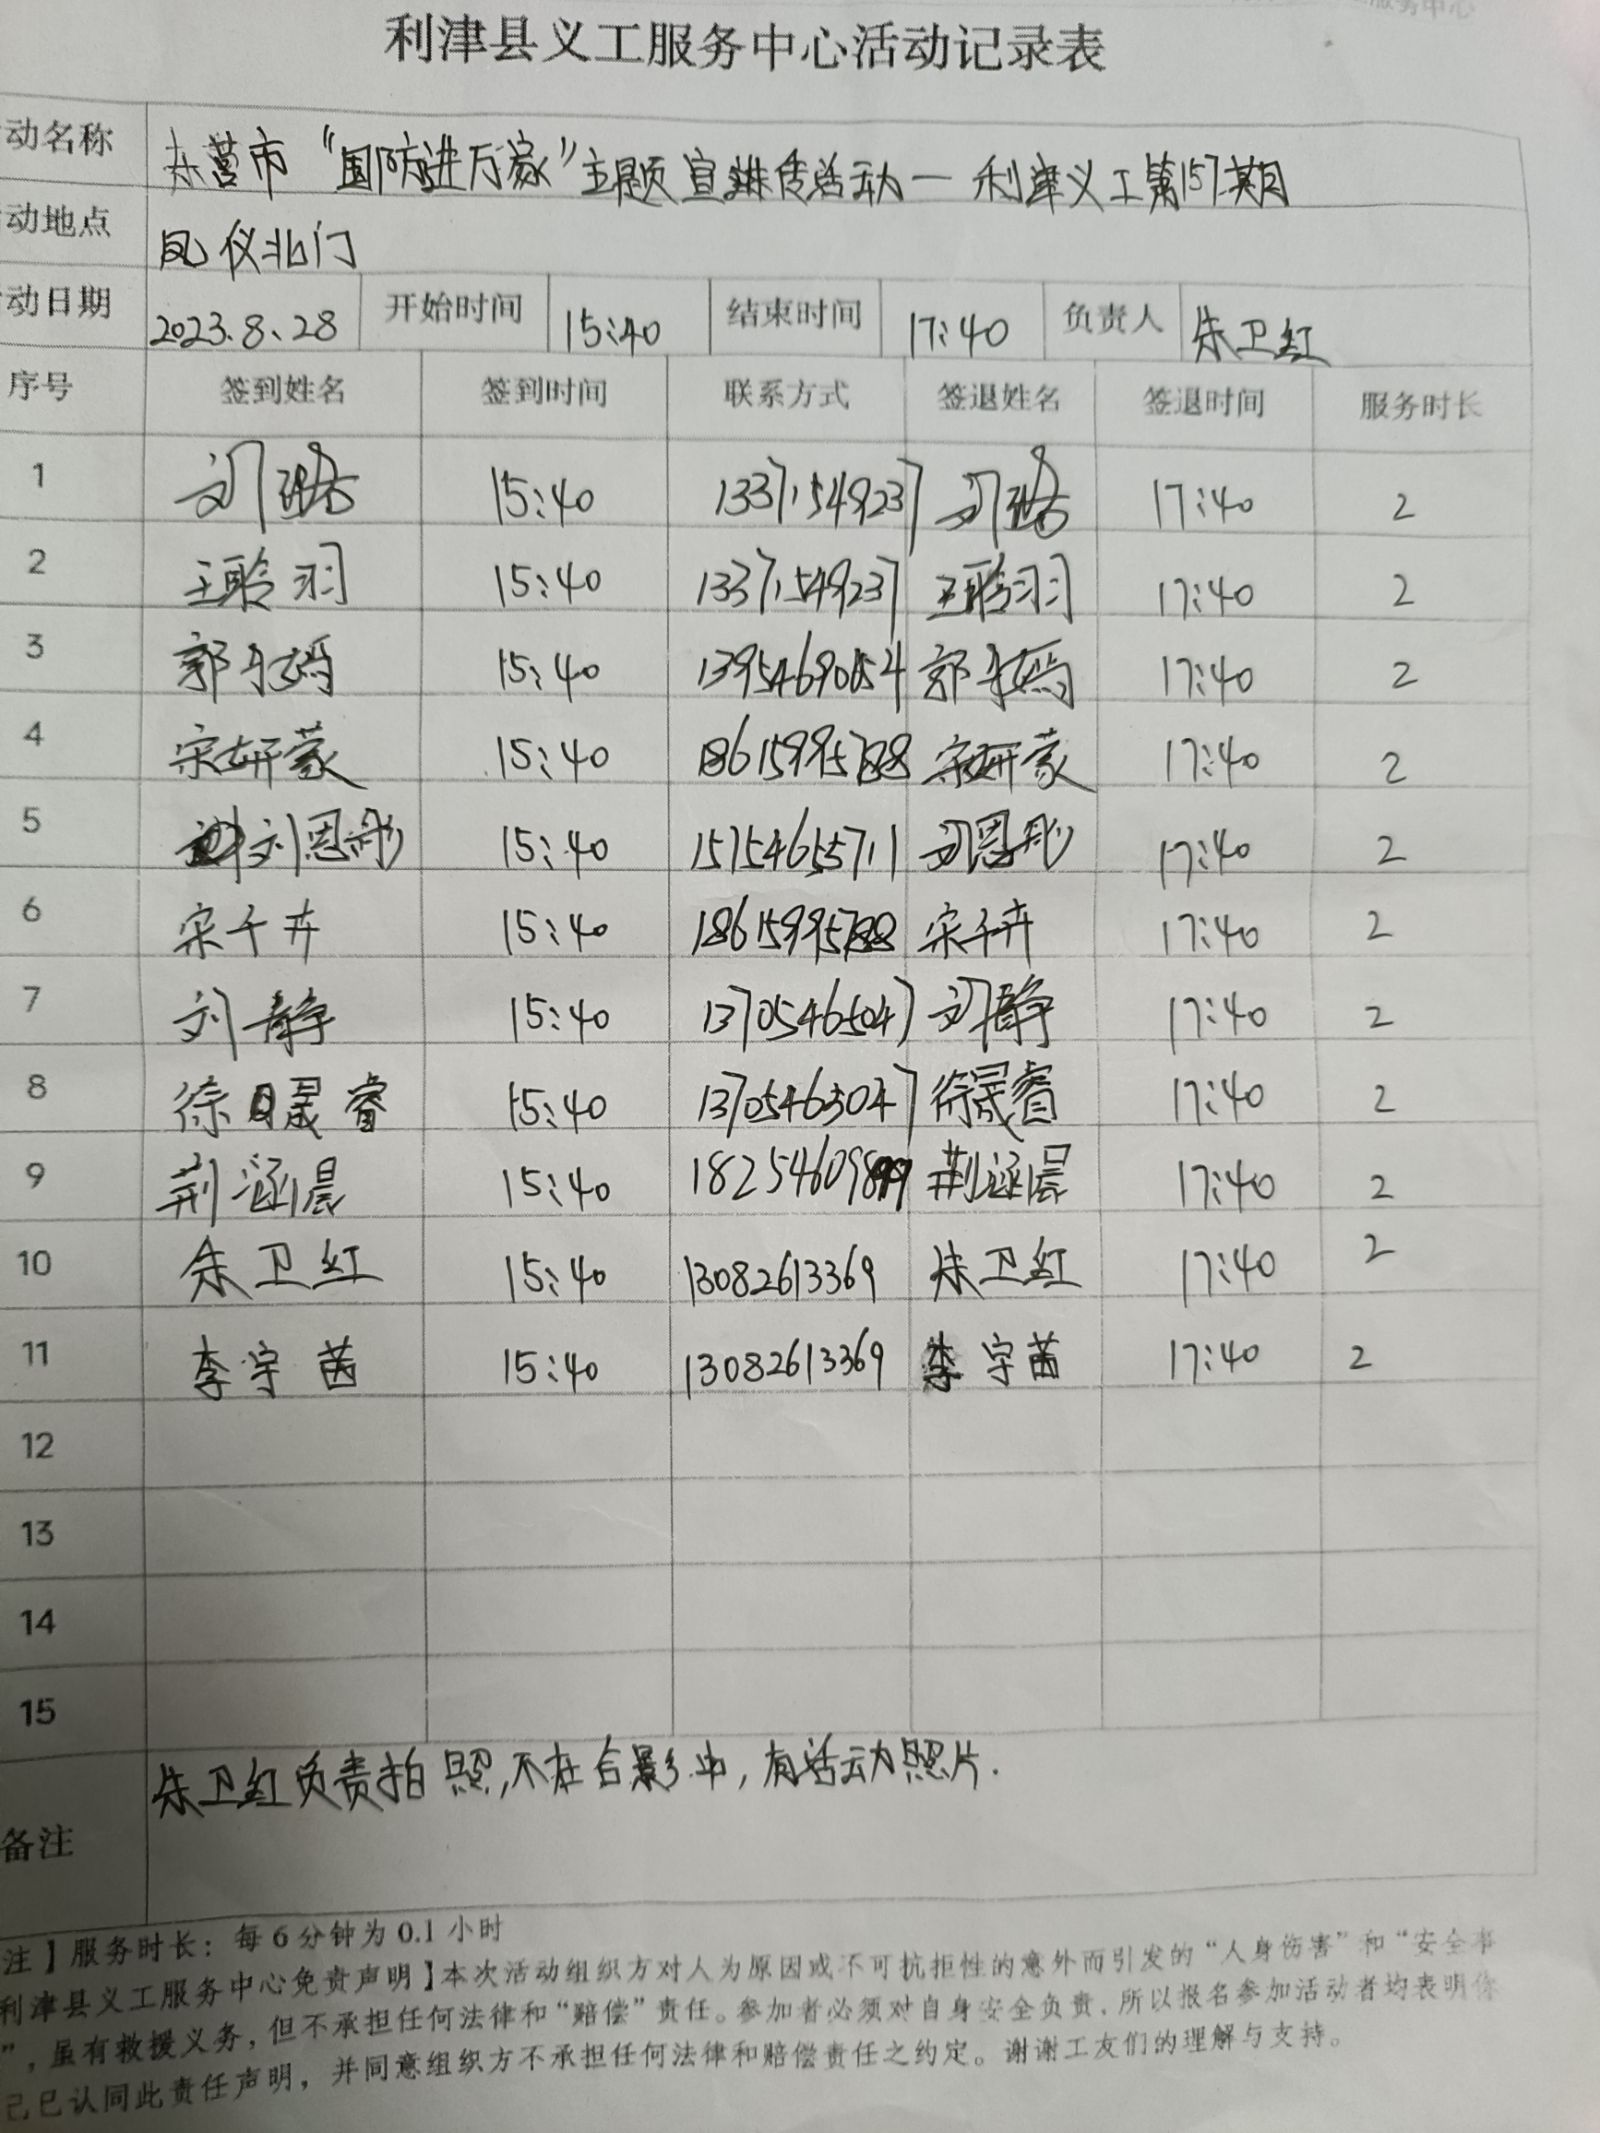 利津县义工服务中心活动记录表
动名称 东营市“国防进万家”主题宣传活动—利津义工第157期
动地点 凤仪北门
动日期 2023.8.28 开始时间 15:40 结束时间 17:40 负责人 朱卫红
序号 签到姓名 签到时间 联系方式 签退姓名 签退时间 服务时长
1 刘璐 15:40 13371549237 刘璐 17:40 2
2 王聆羽 15:40 13371549237 王聆羽 17:40 2
3 郭 15:40 13954690654 郭 17:40 2
4 宋妍蒙 15:40 18615995788 宋妍蒙 17:40 2
5 刘恩彤 15:40 15754655711 刘恩彤 17:40 2
6 宋千卉 15:40 18615995788 宋千卉 17:40 2
7 刘静 15:40 13705465047 刘静 17:40 2
8 徐晟睿 15:40 13705465047 徐晟睿 17:40 2
9 荆涵晨 15:40 荆涵晨 17:40 2
10 朱卫红 15:40 13082613369 朱卫红 17:40 2
11 李宇茜 15:40 13082613369 李宇茜 17:40 2
12
13
14
15
备注 朱卫红负责拍照,不在合影中,有活动照片.
注】服务时长：每6分钟为0.1小时
利津县义工服务中心免责声明】本次活动组织方对人为原因或不可抗拒性的意外而引发的“人身伤害”和“安全事
”，虽有救援义务，但不承担任何法律和“赔偿”责任。参加者必须对自身安全负责，所以报名参加活动者均表明你
己已认同此责任声明，并同意组织方不承担任何法律和赔偿责任之约定。谢谢工友们的理解与支持。